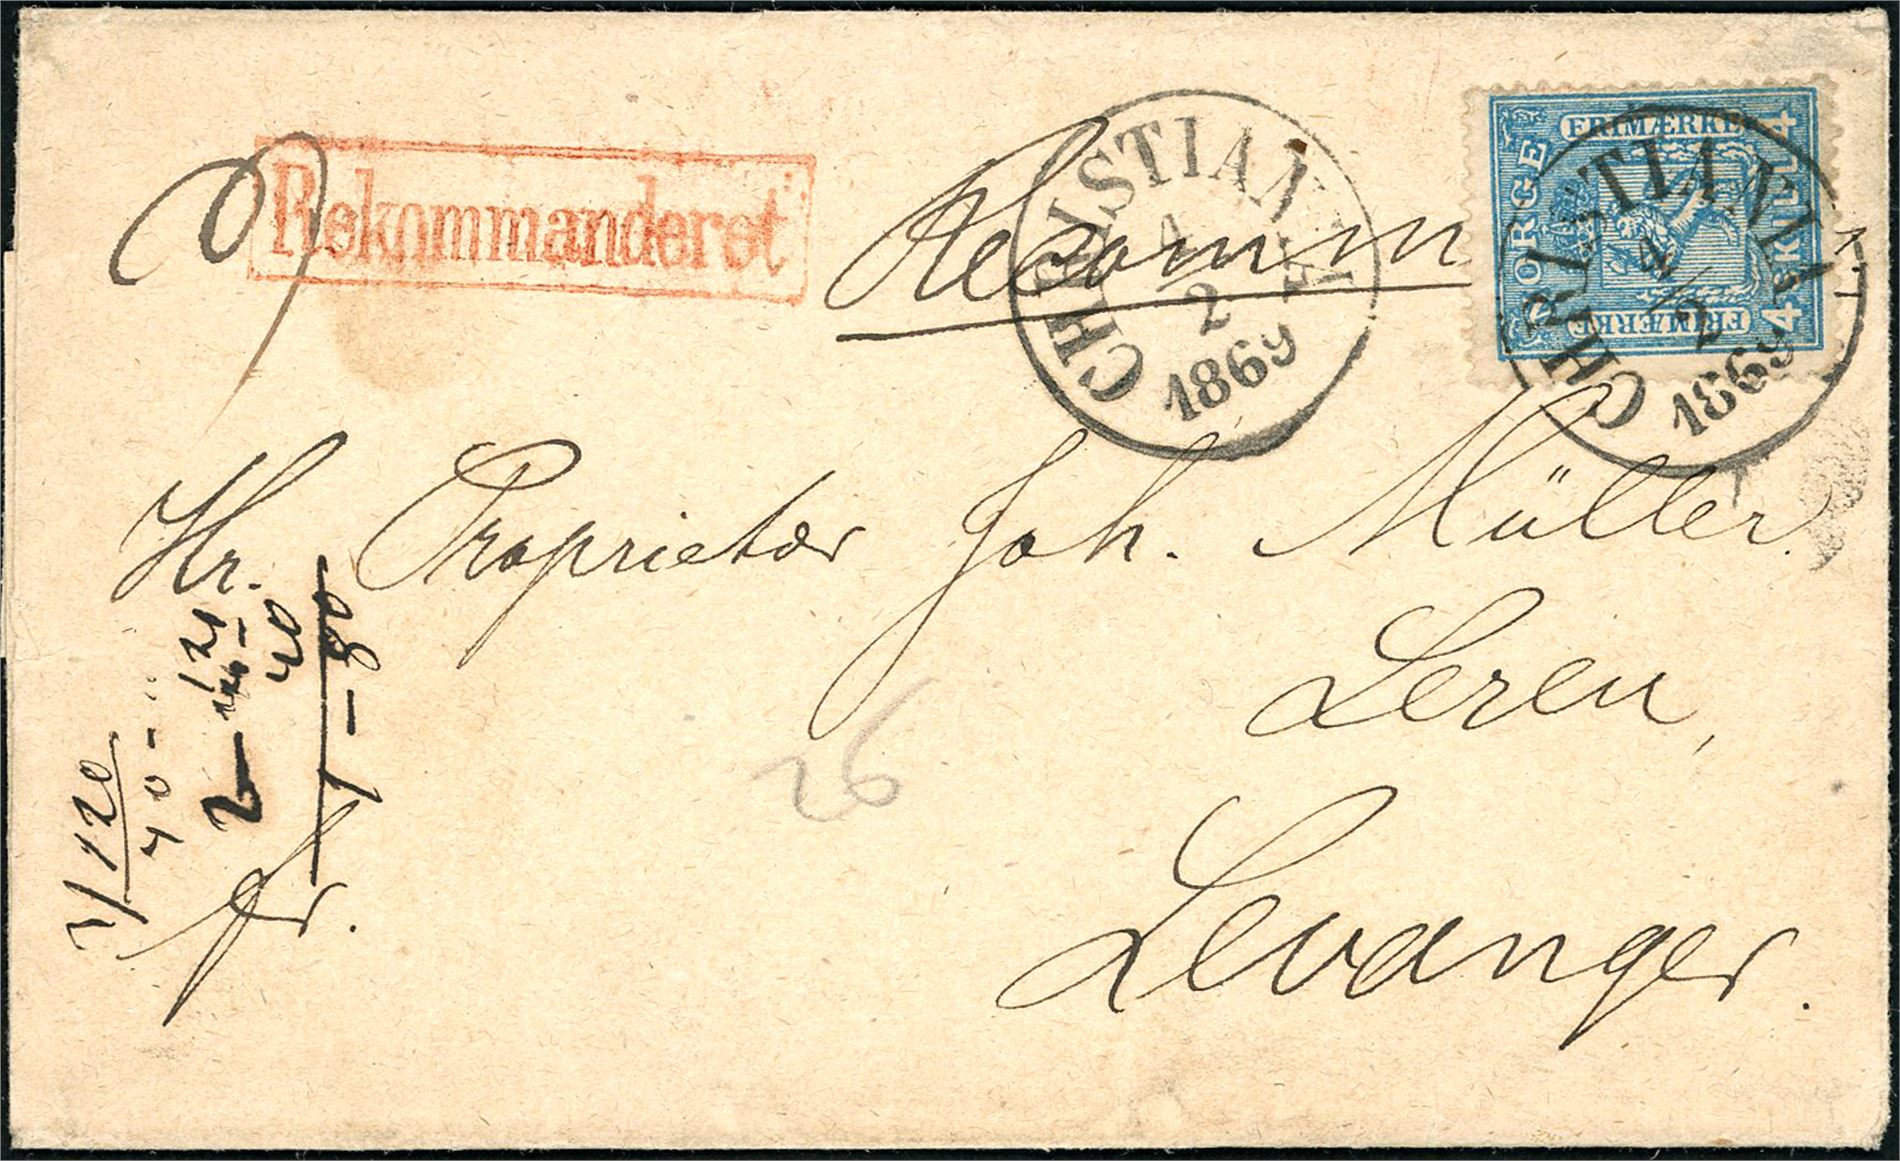 Rekommanderet
Recomm
CHRISTIANIA
4
2
1869
NORGE
FRIMÆRKE
4 SKILL. 4
FRIMÆRKE
CHRISTIANIA
4/2
1869
Hr. Proprietær Joh. Müller.
Leren,
Levanger.
fr.
26
120
40 -
40
1 - 80